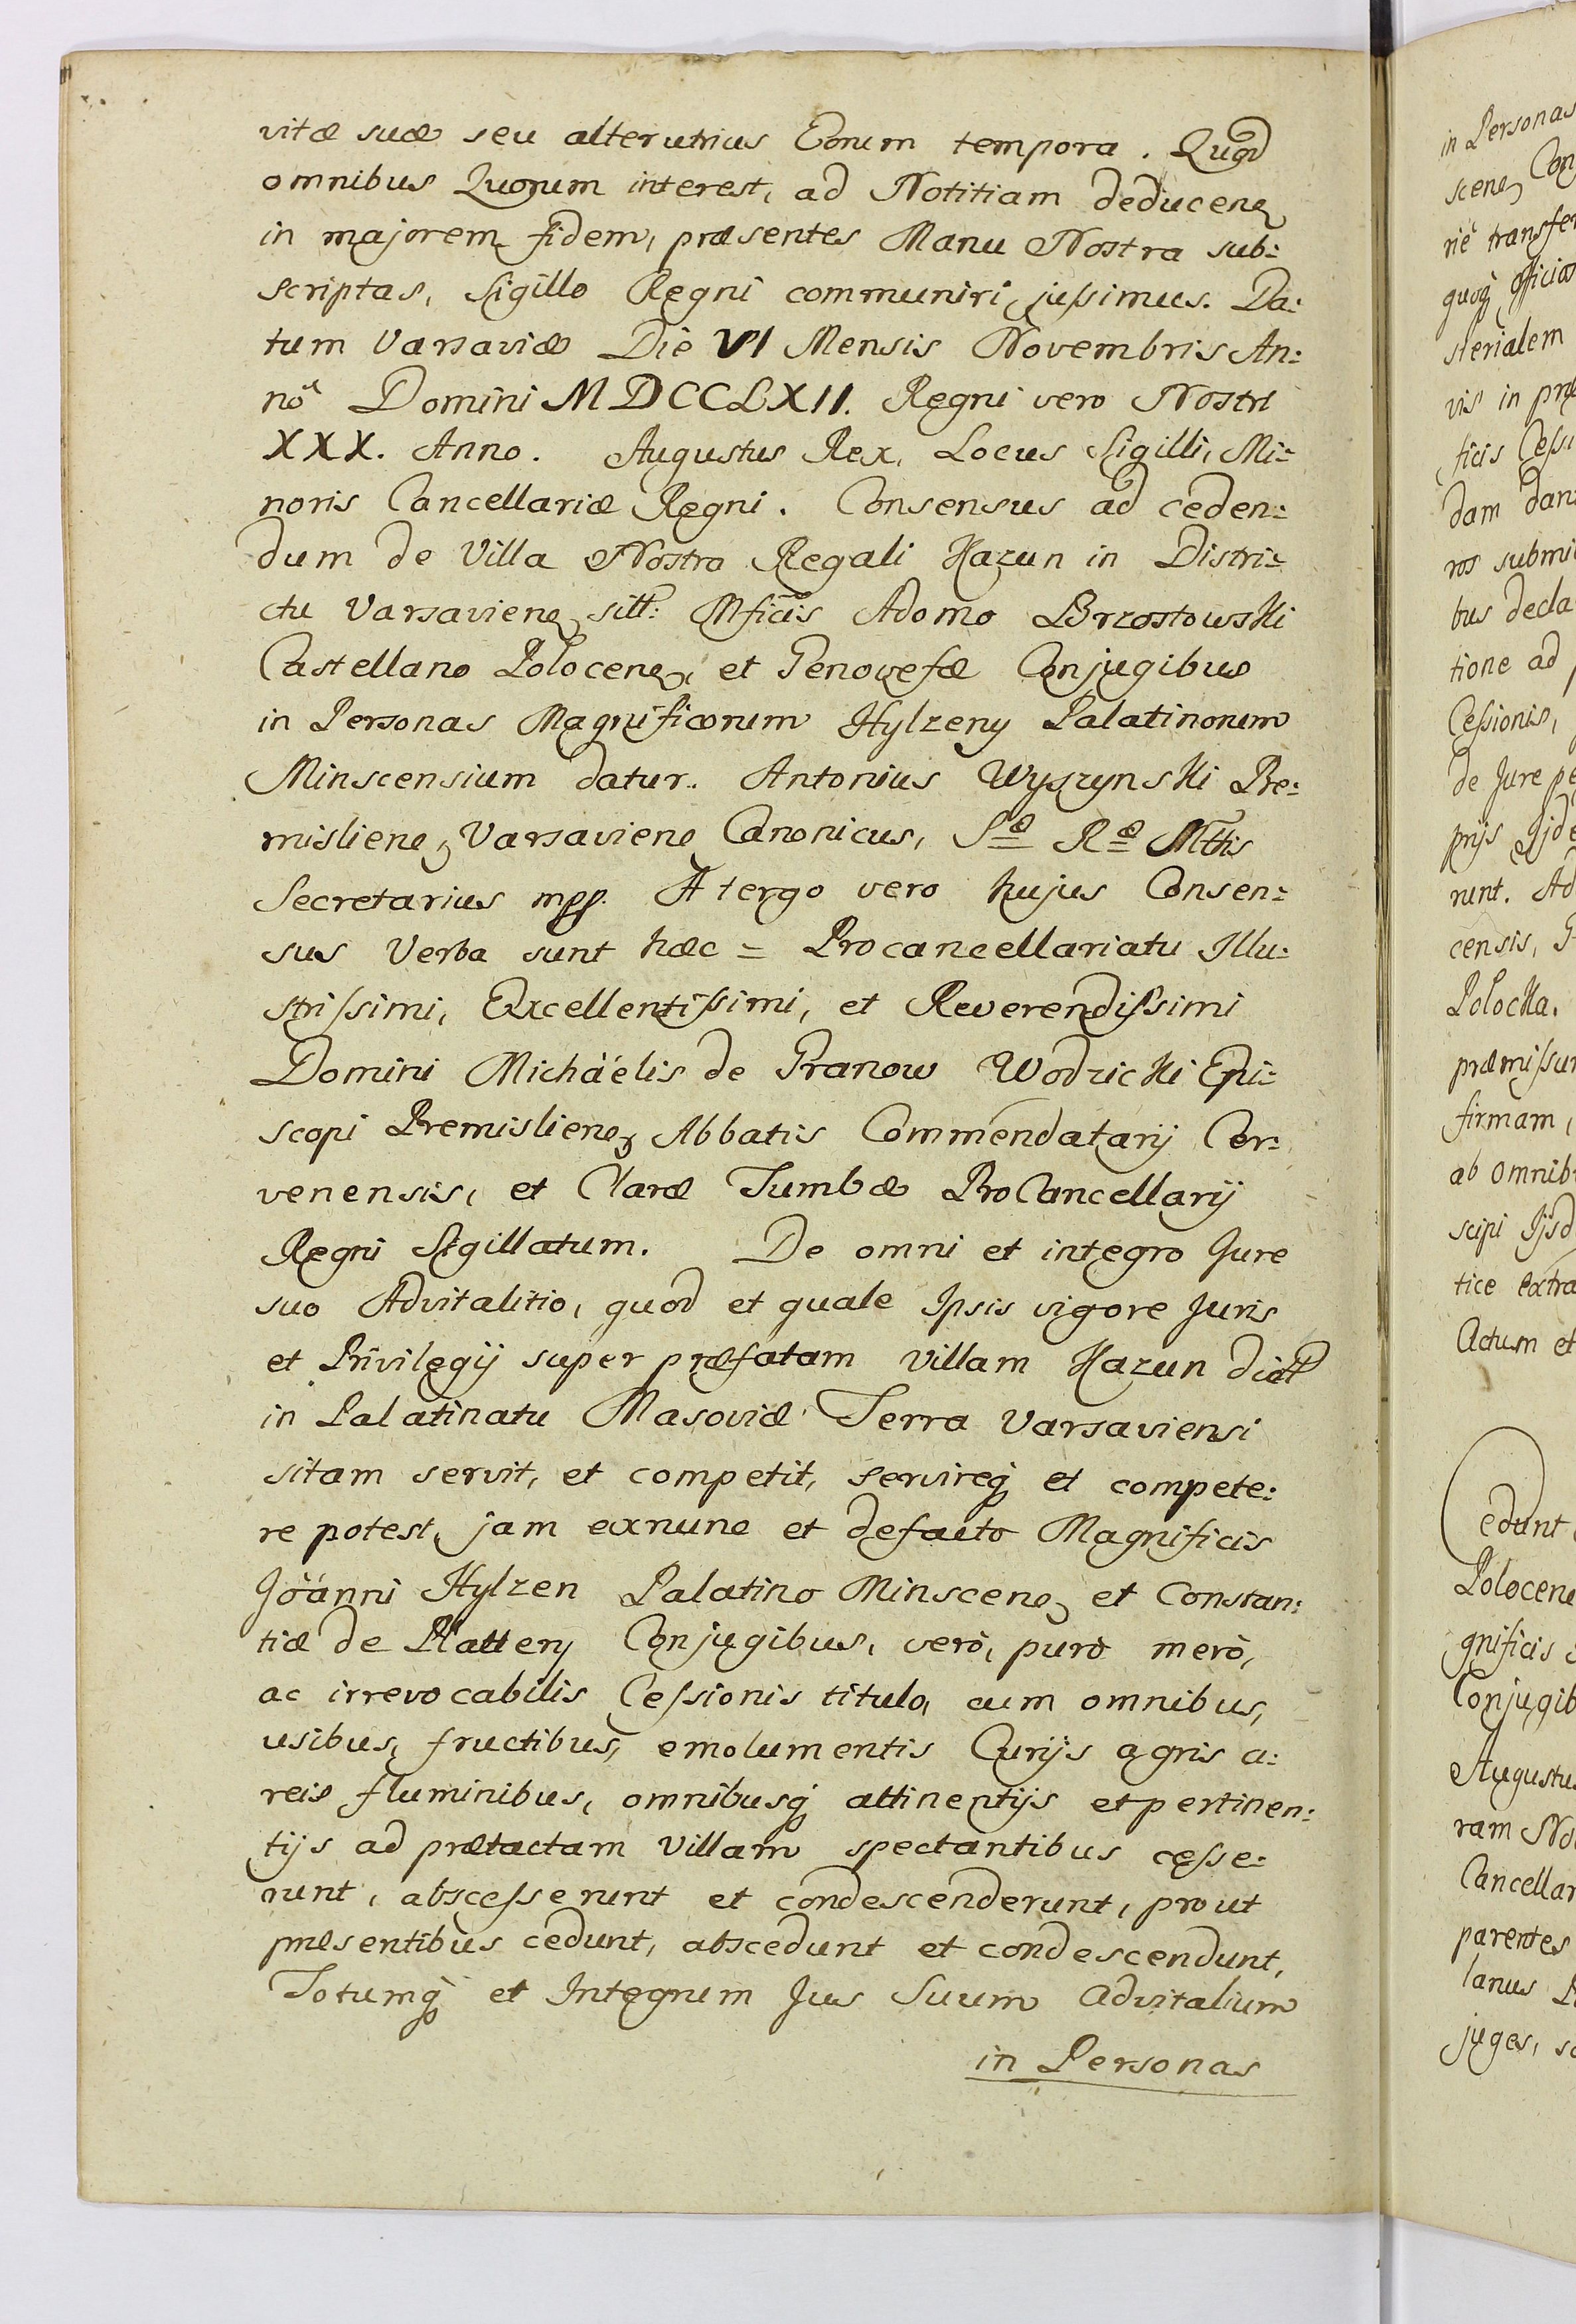 vitæ suæ seu alterutrius Eorum tempora. Quod
omnibus Quorum interest, ad Notitiam deducen
in majorem fidem, præsentes Manu Nostra sub:
scriptas, Sigillo Regni communiri jussimus. Da:
tum Varsaviæ Die VI Mensis Novembris An:
nô Domini MDCCLXII. Regni vero Nostri
XXX. Anno. Augustus Rex, Locus Sigilli, Mi:
noris Cancellariæ Regni. Consensus ad ceden:
dum de Villa Nostra Regali Kazun in Distri:
ctu Varsavien sitt: Mficis Adamo Brzostowski
Castellano Polocen, et Genovefæ Conjugibus
in Personas Magnificorum Hylzeny Palatinorum
Minscensium datur. Antonius Wyszynski Pre:
mislien, Varsavien Canonicus, S R Mttis
Secretarius mpp. A tergo vero hujus Consen:
sus Verba sunt hæc = Procancellariatu Illu:
strissimi, Excellentissimi, et Reverendissimi
Domini Michäelis de Granow Wodzicki Epi:
scopi Premislien, Abbatis Commendatarij Cer:
venensis, et Claræ Tumbæ ProCancellarij
Regni Sigillatum. De omni et integro Jure
suo Advitalitio, quod et quale Ipsis vigore Juris
et Privilegij super præfatam villam Kazun dict
in Palatinatu Masoviæ Terra Varsaviensi
sitam servit, et competit, servireq et compete:
re potest, jam exnunc et defacto Magnificis
Joänni Hylzen Palatino Minscen, et Constan:
tiæ de Platery Conjugibus, verò, purò merò,
ac irrevocabilis Cessionis titulo, cum omnibus,
usibus, fructibus, emolumentis Curijs agris a:
reis fluminibus, omnibusq attinentijs et pertinen:
tijs ad prætactam Villam spectantibus cesse:
runt, abscesserunt et condescenderunt, prout
præsentibus cedunt, abscedunt et condescendunt,
Totumq et Integrum Jus Suum Advitalium
in Personas
in Personas
scen, Con
nê transfer
quoq officios
sterialem
vis in præ
ficis Cessi
dam dan
ros submi
bus decla
tione ad p
Cessionis,
de Jure pe
prijs Ijde
runt. Ad
censis, G
Polocka.
præmissur
firmam,
ab omnib
scipi Ijsd
tice extra
Actum et
Cedunt
Polocen
gnificis
Conjugib
Augustus
ram No
Cancellar
parentes
lanus P
juges, so